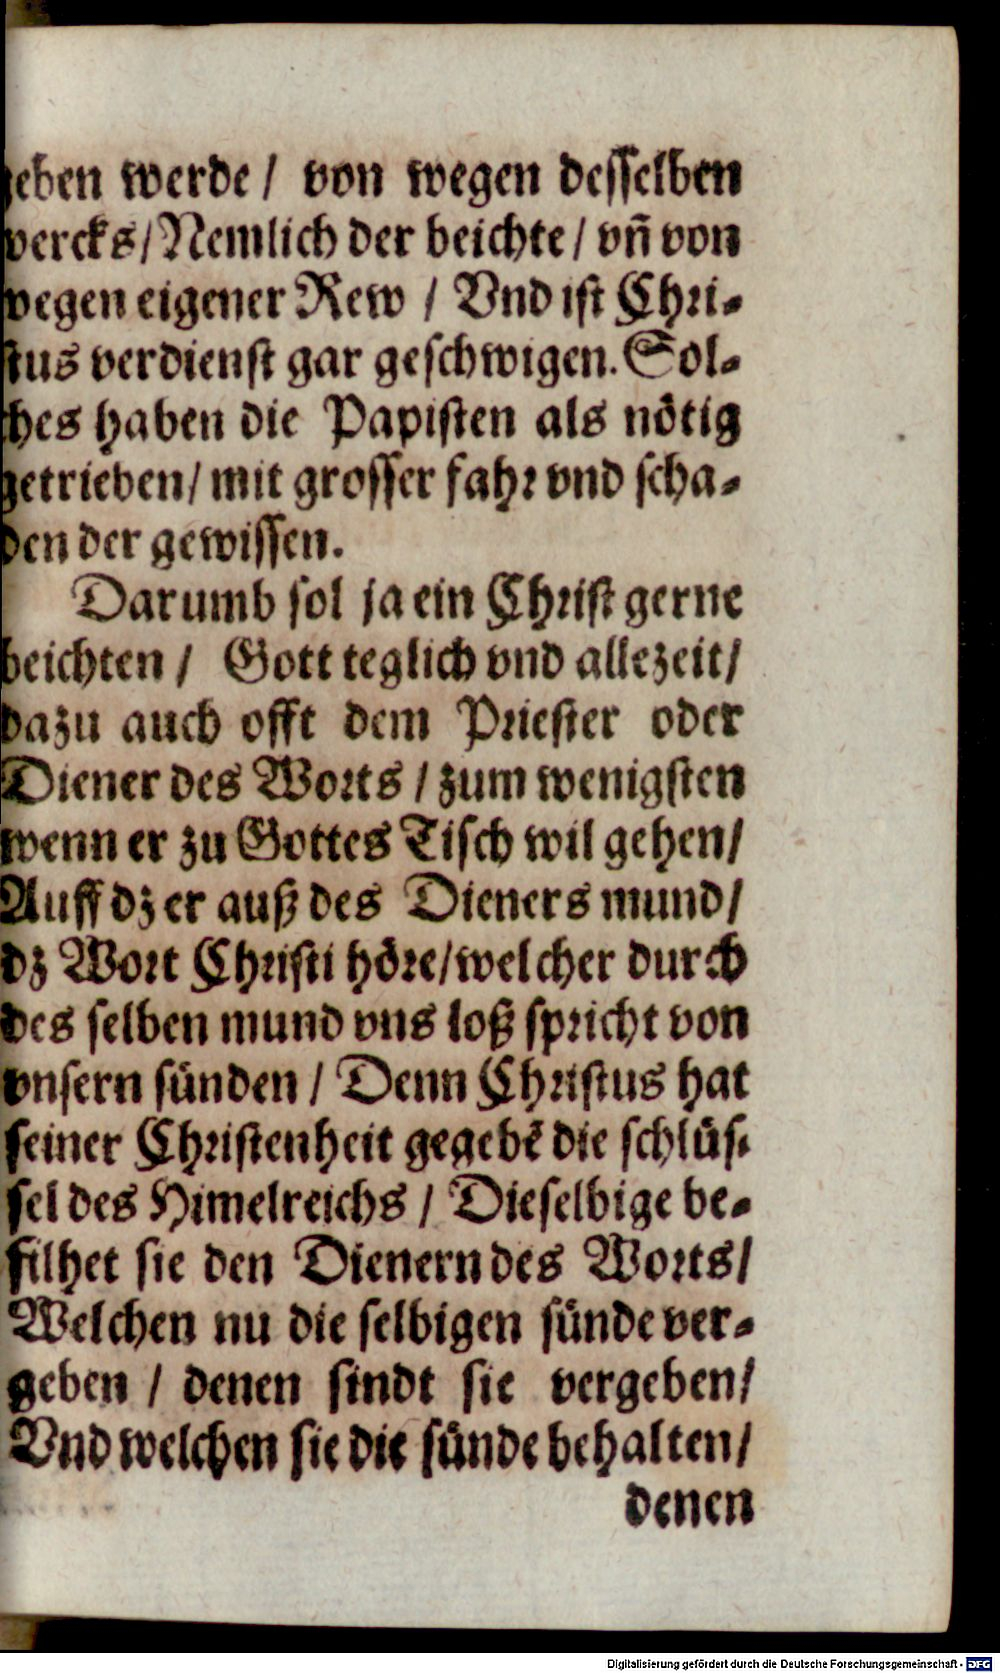 geben werde / von wegen desselben
wercks / Nemlich der beichte / vn̄ von
wegen eigener Rew / Vnd ist Chri-
stus verdienst gar geschwigen. Sol-
ches haben die Papisten als nötig
getrieben / mit grosser fahr vnd scha-
den der gewissen.
Darumb sol ja ein Christ gerne
beichten / Gott teglich vnd allezeit /
dazu auch offt dem Priester oder
Diener des Worts / zum wenigsten
wenn er zu Gottes Tisch wil gehen /
Auff dz er auß des Dieners mund /
dz Wort Christi höre / welcher durch
des selben mund vns loß spricht von
vnsern sünden / Denn Christus hat
seiner Christenheit gegebē die schlüs-
sel des Himelreichs / Dieselbige be-
filhet sie den Dienern des Worts /
Welchen nu die selbigen sünde ver-
geben / denen sindt sie vergeben /
Vnd welchen sie die sünde behalten /
denen
Digitalisierung gefördert durch die Deutsche Forschungsgemeinschaft - DFG